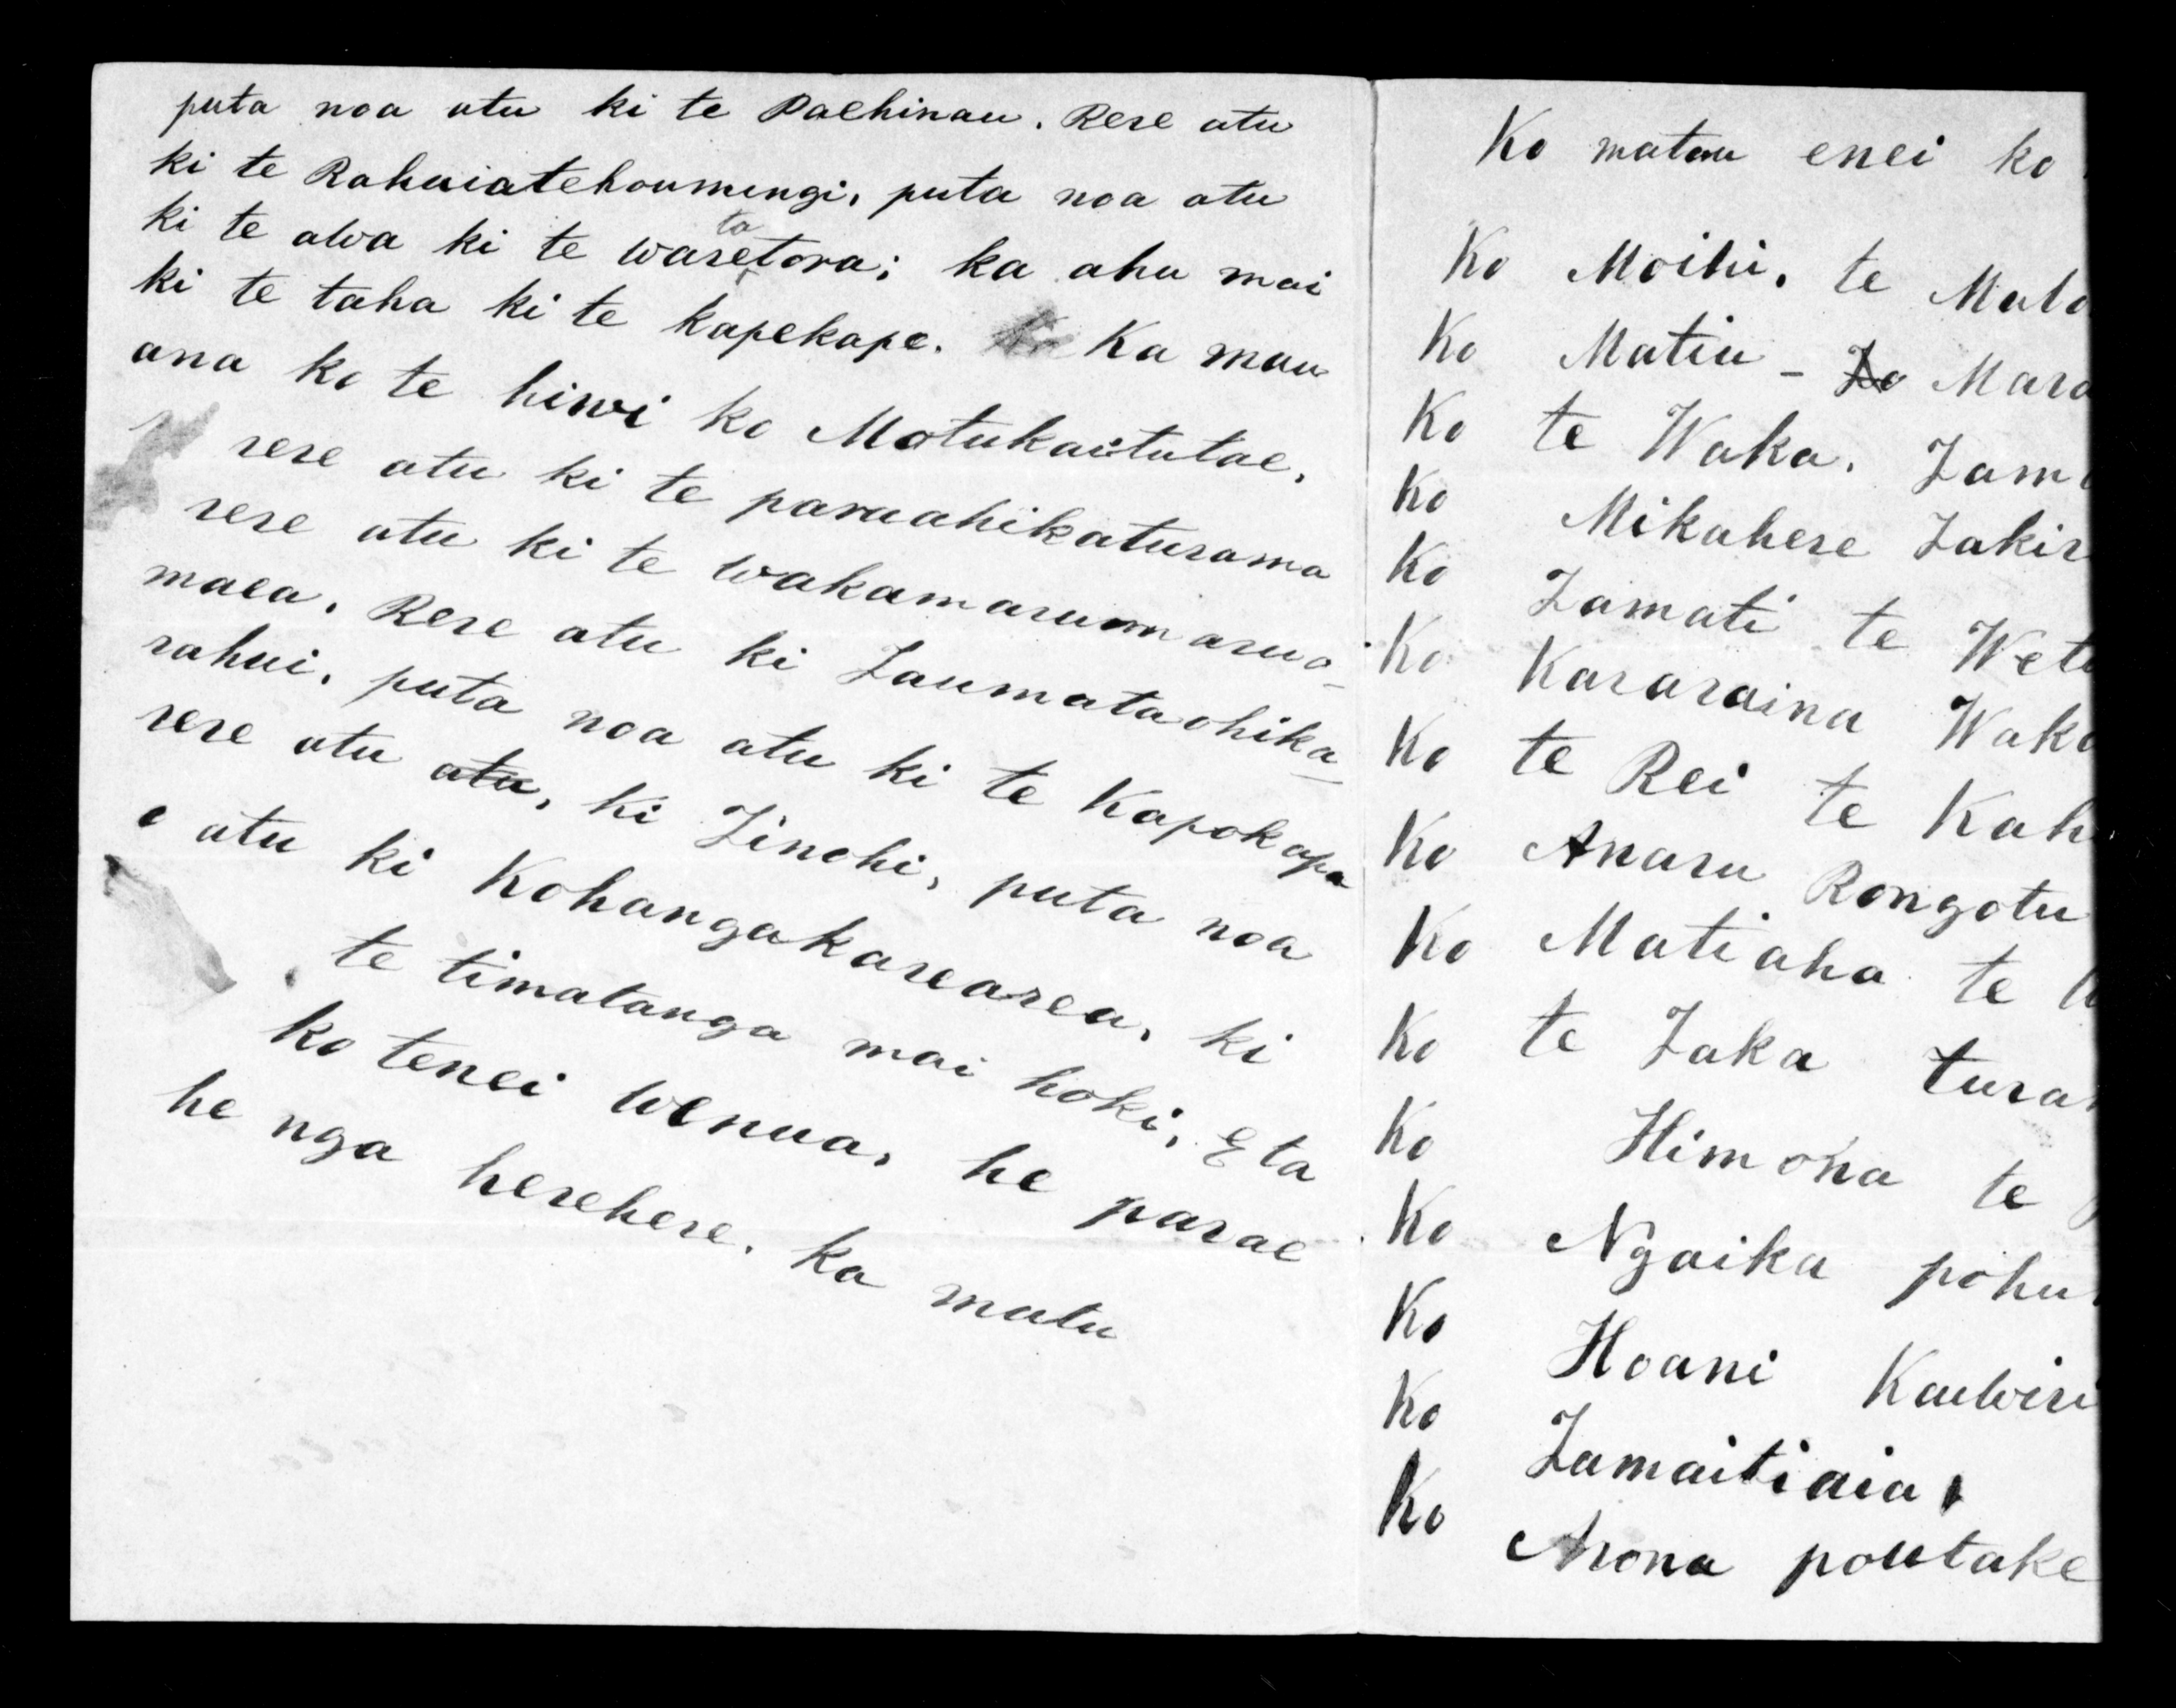 puta noa atu ki te Paehinau. Rere atu
ki te Rahuiatehoumungi, puta noa atu
ki te awa ki te waretatora; ka ahu mai
ki te taha ki te kapekape. Ka mau
ana ko te hiwi ko Motukaitutae,
rere atu ki te paruahikaturama
rere atu ki te wakamarumarua-
maea. Rere atu ki Taumataohika-
rahui, puta noa atu ki te Kapokapa
rere atu atu, ki Tinohi, puta noa
atu ki Kohangakarearea, ki
te timatanga mai hoki, E ta
ko tenei wenua, he parae
he nga herehere. Ka mutu
Ko matou enei ko
Ko Moihi. te
Ko Matiu -
Ko te Waka.
Ko Mikahere
Ko Tamati te
Ko Kararaina
Ko te Rei te
Ko Anaru Rongotu
Ko Matiaha te
Ko te Taka
Ko Himona te
Ko Ngaika
Ko Hoani Kauwiri
Ko Tamaitiaia,
Ko Arona poutake